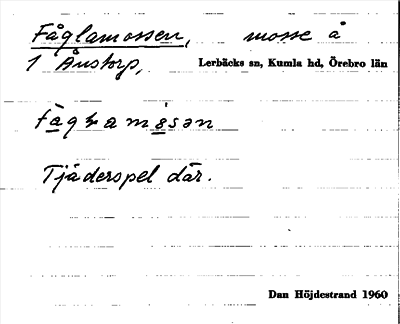 Fåglamossen, mosse å
1 Ånstorp, Lerbäcks sn, Kumla hd, Örebro län
Tjäderspel där.
Dan Höjdestrand 1960